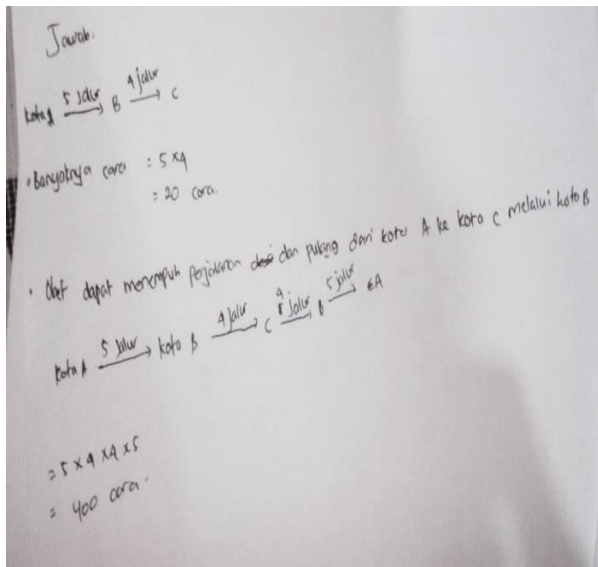 Jawab.
Kota A 5 jalur → B 4 jalur → C
• Banyaknya cara : 5 x 4
= 20 cara.
• Obet dapat menempuh perjalanan dan pulang dari kota A ke kota C melalui kota B
Kota A 5 jalur → kota B 4 jalur → C 4 jalur → B 5 jalur → A
= 5 x 4 x 4 x 5
= 400 cara.